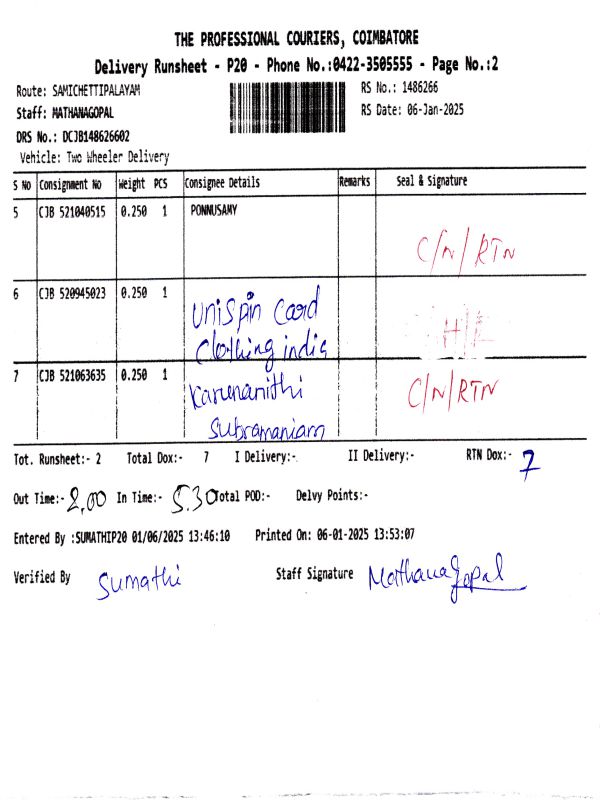 THE PROFESSIONAL COURIERS, COIMBATORE
Delivery Runsheet - P20 - Phone No.:0422-3505555 - Page No.:2
Route: SAMICHETTIPALAYAM
RS No.: 1486266
Staff: MATHANAGOPAL
RS Date: 06-Jan-2025
DRS No.: DCJB148626602
Vehicle: Two Wheeler Delivery
S No Consignment No Weight PCS Consignee Details Remarks Seal & Signature
5 CJB 521040515 0.250 1 PONNUSAMY
C/N/RTN
6 CJB 520945023 0.250 1 Unispin Card
Clothing india
7 CJB 521063635 0.250 1 Karunanithi C/N/RTN
Subramaniam
Tot. Runsheet:- 2 Total Dox:- 7 I Delivery:- II Delivery:- RTN Dox:- 7
Out Time:- 2.00 In Time:- 5.30 Total POD:- Delvy Points:-
Entered By :SUMATHIP20 01/06/2025 13:46:10 Printed On: 06-01-2025 13:53:07
Verified By Sumathi Staff Signature Mathanagopal